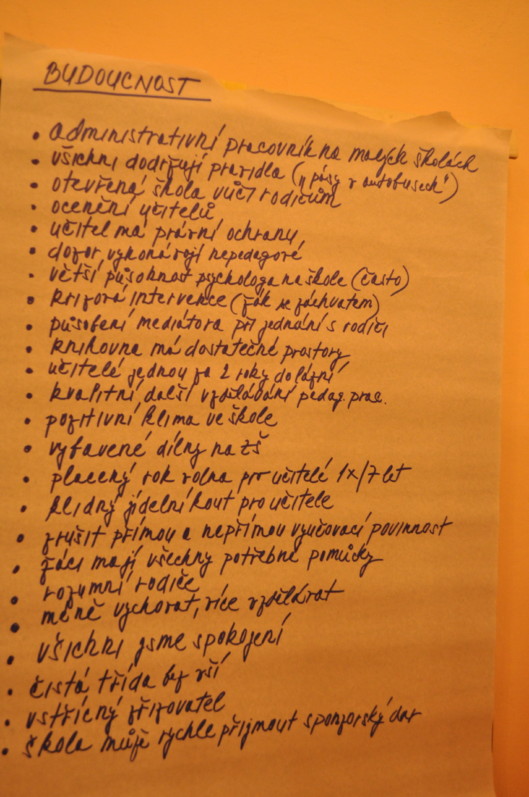 BUDOUCNOST
• administrativní pracovník na malých školách
• všichni dodržují pravidla („pásy v autobusech“)
• otevřená škola vůči rodičům
• ocenění učitelů
• učitel má právní ochranu
• dozor vykonávají nepedagové
• větší působnost psychologa na škole (často)
• krizová intervence (žák se záchvatem)
• působení mediátora při jednání s rodiči
• knihovna má dostatečné prostory
• učitelé jednou za 2 roky do lázní
• kvalitní další vzdělávání pedag. prac.
• pozitivní klima ve škole
• vybavené dílny na ZŠ
• placený rok volna pro učitelé 1x/7 let
• klidný jídelní kout pro učitele
• zrušit přímou a nepřímou vyučovací povinnost
• žáci mají všechny potřebné pomůcky
• rozumní rodiče
• méně vychovat, více vzdělávat
• všichni jsme spokojení
• čistá třída bez vší
• vstřícný zřizovatel
• škola může rychle přijmout sponzorský dar